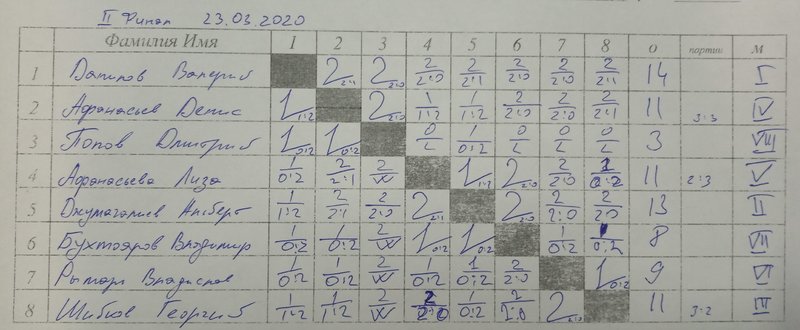 II Финал 23.03.2020
Фамилия Имя 1 2 3 4 5 6 7 8 О партии М
1 Данилов Валерий 2 2:1 2 2:0 2 2:0 2 2:1 2 2:0 2 2:0 2 2:1 14 I
2 Афанасьев Денис 1 1:2 2 2:0 1 1:2 1 1:2 2 2:0 2 2:0 2 2:1 11 3:3 IV
3 Попов Дмитрий 1 0:2 1 0:2 0 L 1 0:2 0 L 0 L 0 L 3 VIII
4 Афанасьева Лиза 1 0:2 2 2:1 2 W 1 1:2 2 2:0 2 2:0 1 0:2 11 2:3 V
5 Джумагалиев 1 1:2 2 2:1 2 2:0 2 2:1 2 2:0 2 2:0 2 2:0 13 II
6 Бухтояров Владимир 1 0:2 1 0:2 2 W 1 0:2 1 0:2 1 0:2 1 0:2 8 VII
7 1 0:2 1 0:2 2 W 1 0:2 1 0:2 2 2:0 1 0:2 9 VI
8 Шибков Георгий 1 1:2 1 1:2 2 W 2 2:0 1 0:2 2 2:0 2 2:0 11 3:2 III